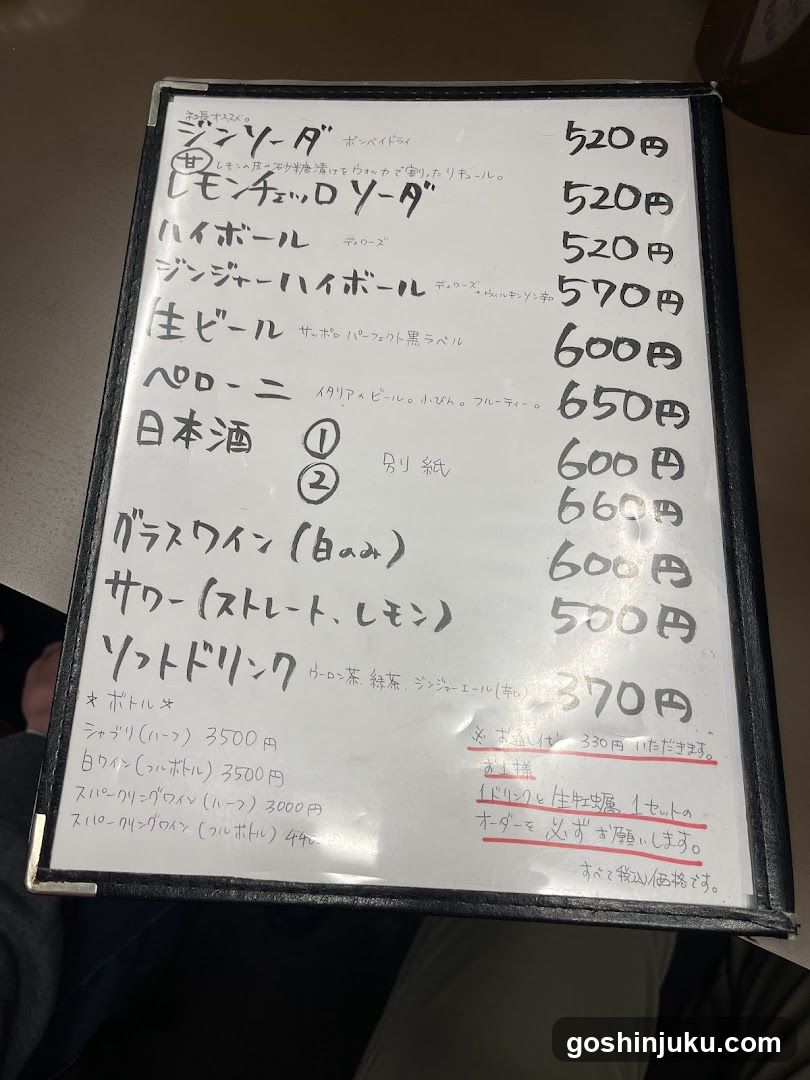 社長オススメ。
ジンソーダ ボンベイドライ 520円
甘 レモンの皮の砂糖漬けをウォッカで割ったリキュール。
レモンチェッロソーダ 520円
ハイボール デュワーズ 520円
ジンジャーハイボール デュワーズ + ウィルキンソン辛口 570円
生ビール サッポロ パーフェクト黒ラベル 600円
ペローニ イタリアのビール。小びん。フルーティー。 650円
日本酒 ① 別紙 600円
② 660円
グラスワイン(白のみ) 600円
サワー(ストレート、レモン) 500円
ソフトドリンク ウーロン茶、緑茶、ジンジャーエール(辛口) 370円
*ボトル*
シャブリ(ハーフ) 3500円
白ワイン(フルボトル) 3500円
スパークリングワイン(ハーフ) 3000円
スパークリングワイン(フルボトル)
※お通し代 330円いただきます。
お1人様
1ドリンクと生牡蠣1セットの
オーダーを必ずお願いします。
すべて税込価格です。
goshinjuku.com